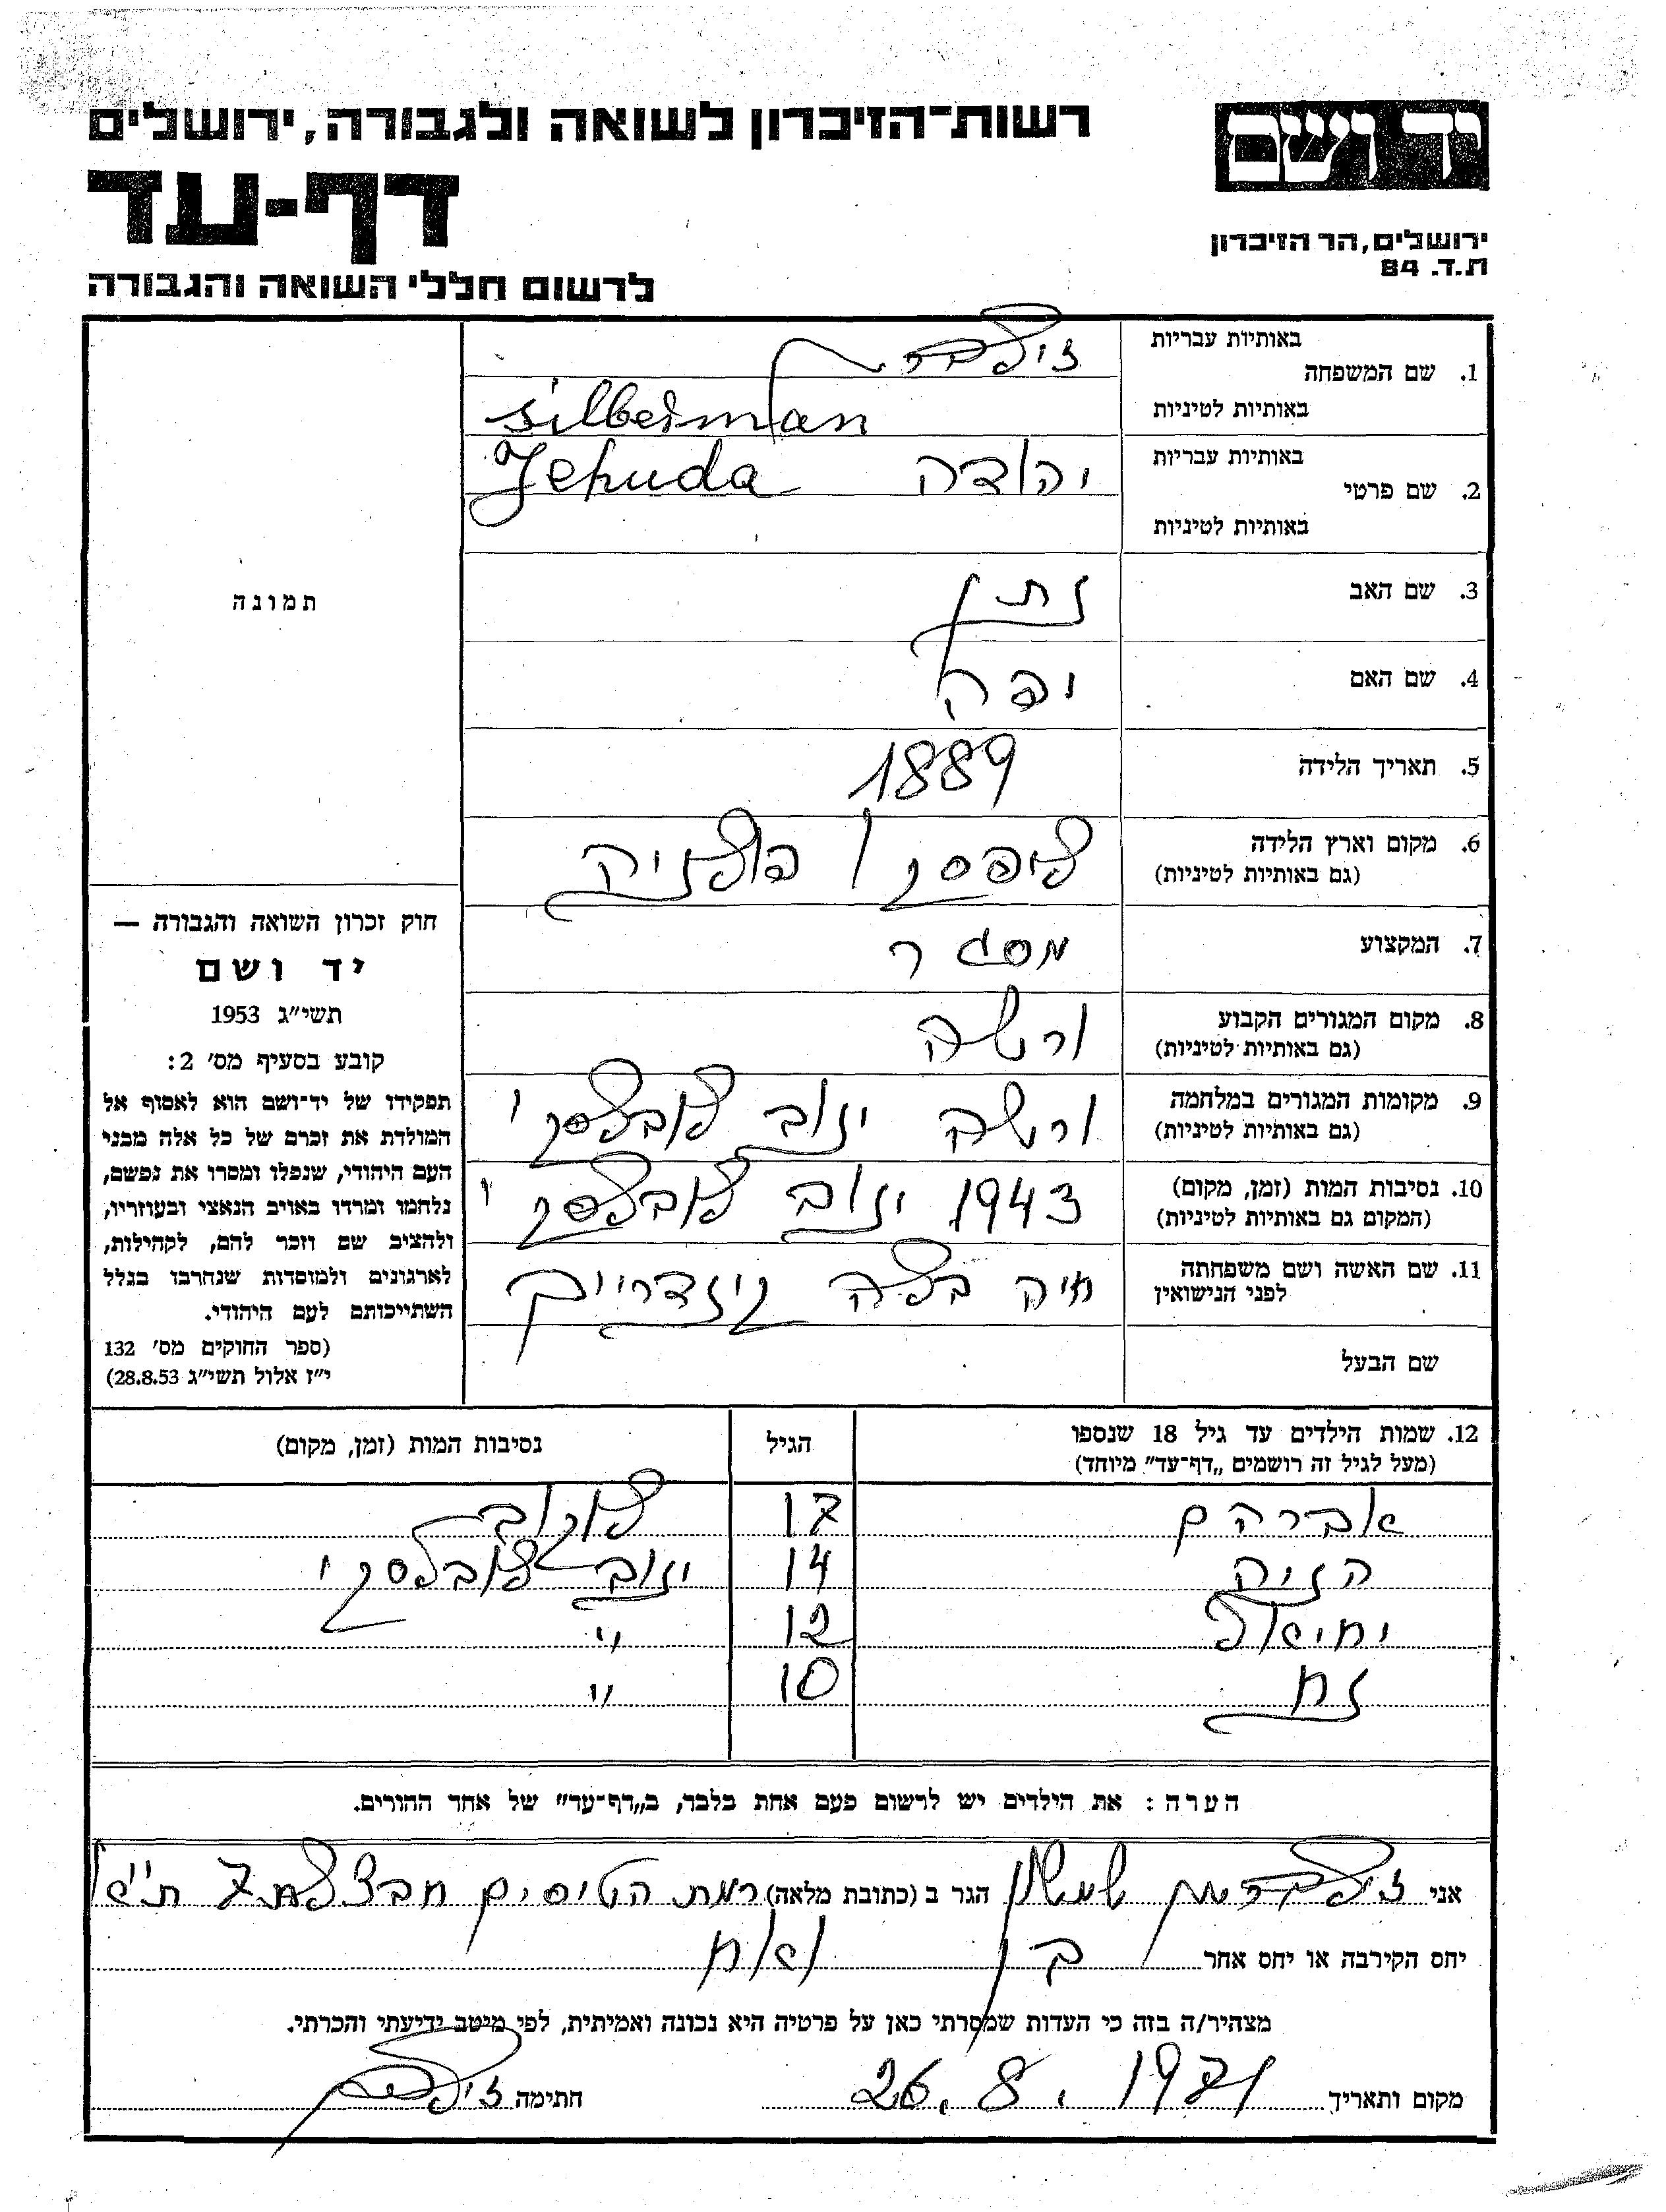 רשות-הזיכרון לשואה ולגבורה, ירושלים
יד ושם
דף-עד
ירושלים, הר הזיכרון
ת.ד. 84
לרשום חללי השואה והגבורה
באותיות עבריות
1. שם המשפחה
זילברמן
באותיות לטיניות
silberman
באותיות עבריות
2. שם פרטי
יהודה Jehuda
באותיות לטיניות
3. שם האב
נתן
4. שם האם
יפה
5. תאריך הלידה
1889
6. מקום וארץ הלידה
(גם באותיות לטיניות)
ליפסק / פולניה
7. המקצוע
מסגר
8. מקום המגורים הקבוע
(גם באותיות לטיניות)
ורשה
9. מקומות המגורים במלחמה
(גם באותיות לטיניות)
ורשה ינוב לובלסקי
10. נסיבות המות (זמן, מקום)
(המקום גם באותיות לטיניות)
1943 ינוב לובלסקי
11. שם האשה ושם משפחתה
לפני הנישואין
חיה בלה
שם הבעל
תמונה
חוק זכרון השואה והגבורה —
יד ושם
תשי״ג 1953
קובע בסעיף מס׳ 2:
תפקידו של יד־ושם הוא לאסוף אל
המולדת את זכרם של כל אלה מבני
העם היהודי, שנפלו ומסרו את נפשם,
נלחמו ומרדו באויב הנאצי ובעוזריו,
ולהציב שם וזכר להם, לקהילות,
לארגונים ולמוסדות שנחרבו בגלל
השתייכותם לעם היהודי.
(ספר החוקים מס׳ 132
י״ז אלול תשי״ג 28.8.53)
12. שמות הילדים עד גיל 18 שנספו
(מעל לגיל זה רושמים „דף־עד״ מיוחד)
הגיל
נסיבות המות (זמן, מקום)
אברהם 17 לוקוב
הניה 14 ינוב לובלסקי
יחיאל 12 ״
נח 10 ״
הערה: את הילדים יש לרשום פעם אחת בלבד, ב„דף־עד״ של אחד ההורים.
אני זילברמן שמשון הגר ב (כתובת מלאה) רמת הטיסים חבצלת 7 ת״א
יחס הקירבה או יחס אחר בן ואח
מצהיר/ה בזה כי העדות שמסרתי כאן על פרטיה היא נכונה ואמיתית, לפי מיטב ידיעתי והכרתי.
מקום ותאריך 26.8.1971 חתימה זילברמן